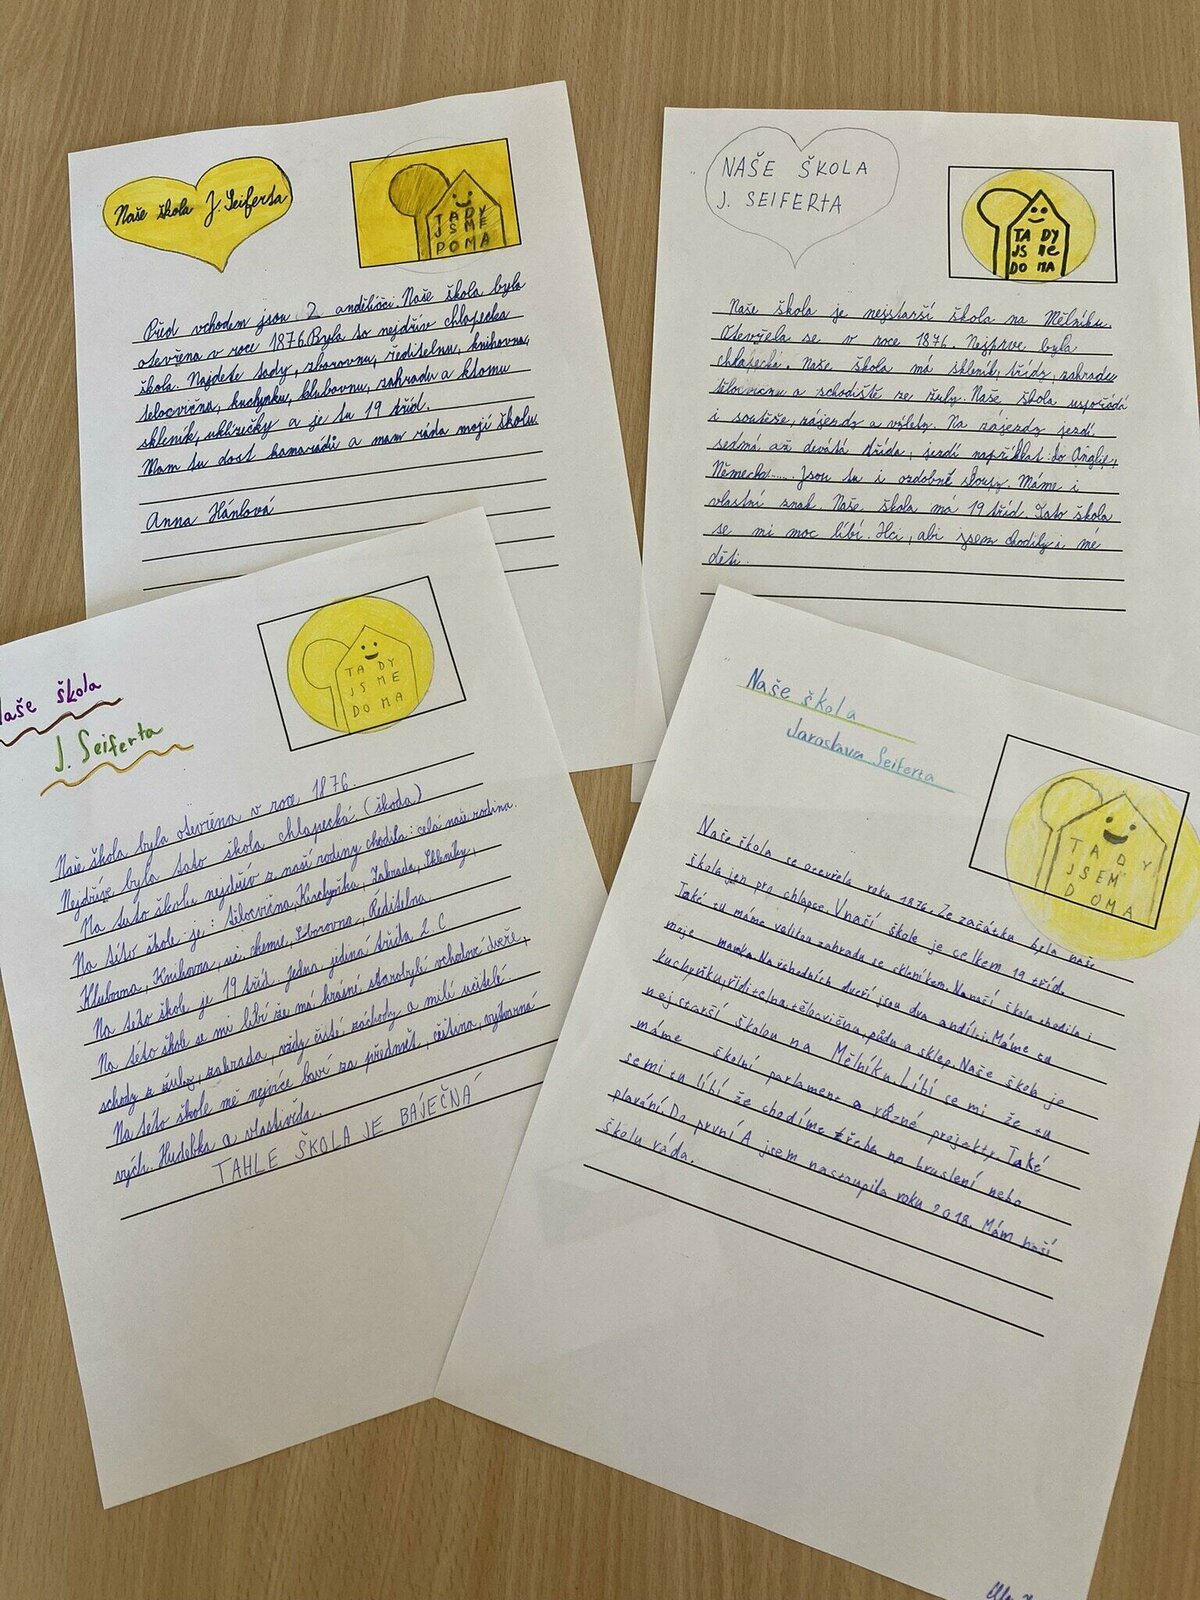 Naše škola J. Seiferta
TADY
JSME
DOMA
Před vchodem jsou 2 andělíčci. Naše škola byla
otevřena v roce 1876. Byla to nejdřív chlapecká
škola. Najdete tady, sborovnu, ředitelnu, knihovna,
telocvična, kuchynku, klubovnu, zahradu a k tomu
skleník, uklízečky a je tu 19 tříd.
Mam tu dost kamarádů a mam ráda moji školu.
Anna Hánlová
NAŠE ŠKOLA
J. SEIFERTA
TA DY
JS Me
DO MA
Naše škola je nejstarší škola na Mělníku.
Otevřela se v roce 1876. Nejprve byla
chlapecká. Naše škola má skleník, třídy, zahradu
tělocvičnu a schodiště ze žuly. Naše škola uspořádá
i soutěže, zájezdy a výlety. Na zájezdy jezdí
sedmá až devátá třída, jezdí například do Anglie,
Německa..... Jsou tu i ozdobné sloupy. Máme i
vlastní znak. Naše škola má 19 tříd. Tato škola
se mi moc líbí. Hci, abi jsem chodily i mé
děti.
aše škola
J. Seiferta
TA DY
JS ME
DO MA
Naše škola byla otevřena v roce 1876.
Nejdříve byla tato škola chlapecká (škoda)
Na tuto školu nejdřív z naší rodiny chodila: celá naše rodina.
Na této škole je: tělocvična, Kuchyňka, Zahrada, Skleníky,
Klubovna, Knihovna, uč. chemie, Sborovna, Ředitelna
Na této škole je 19 tříd jedna jediná třída 2 C
Na této škole se mi líbí že má krásné starobylé vchodové dveře,
schody z žuly, zahrada, vždy čisté záchody a milí učitelé
Na této škole mě nejvíce baví za předmět, čeština, výtvarná
vých. Hudebka a vlastivěda.
TAHLE ŠKOLA JE BÁJEČNÁ
Naše škola
Jaroslava Seiferta
TADY
JSEM
DOMA
Naše škola se otevřela roku 1876. Ze začátku byla naše
škola jen pro chlapce. V naší škole je celkem 19 tříd.
Také tu máme velikou zahradu se skleníkem. Na naší školu chodila i
moje mamka. Na vchodních dveří jsou dva andílci. Máme tu
kuchyňku, řiditelna, tělocvična, půdu a sklep. Naše škola je
nejstarší školou na Mělníku. Líbí se mi že tu
máme školní parlament a různé projekty. Také
se mi tu líbí že chodíme třeba na bruslení nebo
plavání. Do první A jsem nastoupila roku 2018. Mám naší
školu ráda.